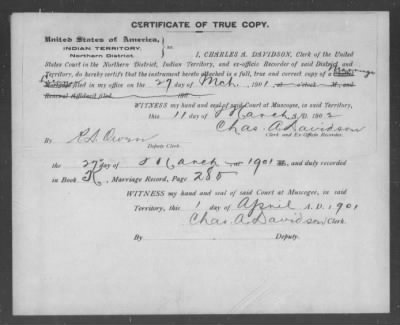 CERTIFICATE OF TRUE COPY.
United States of America,
INDIAN TERRITORY,
Northern District.
ss.
I, CHARLES A. DAVIDSON, Clerk of the United
States Court in the Northern District, Indian Territory, and ex-officio Recorder of said District and
Marriage
Territory, do hereby certify that the instrument hereto attached is a full, true and correct copy of a
Mortgage filed in my office on the 27 day of Mch. 1901
Renewal Affidavit filed 190
WITNESS my hand and seal of said Court at Muscogee, in said Territory,
this 11 day of March A.D. 1902
Chas. A. Davidson
Clerk and Ex-Officio Recorder.
By
Deputy Clerk.
the 27 day of March 1901 M., and duly recorded
in Book K, Marriage Record, Page 285
WITNESS my hand and seal of said Court at Muscogee, in said
Territory, this 1 day of April A.D. 1901
Chas. A. Davidson Clerk.
By Deputy.